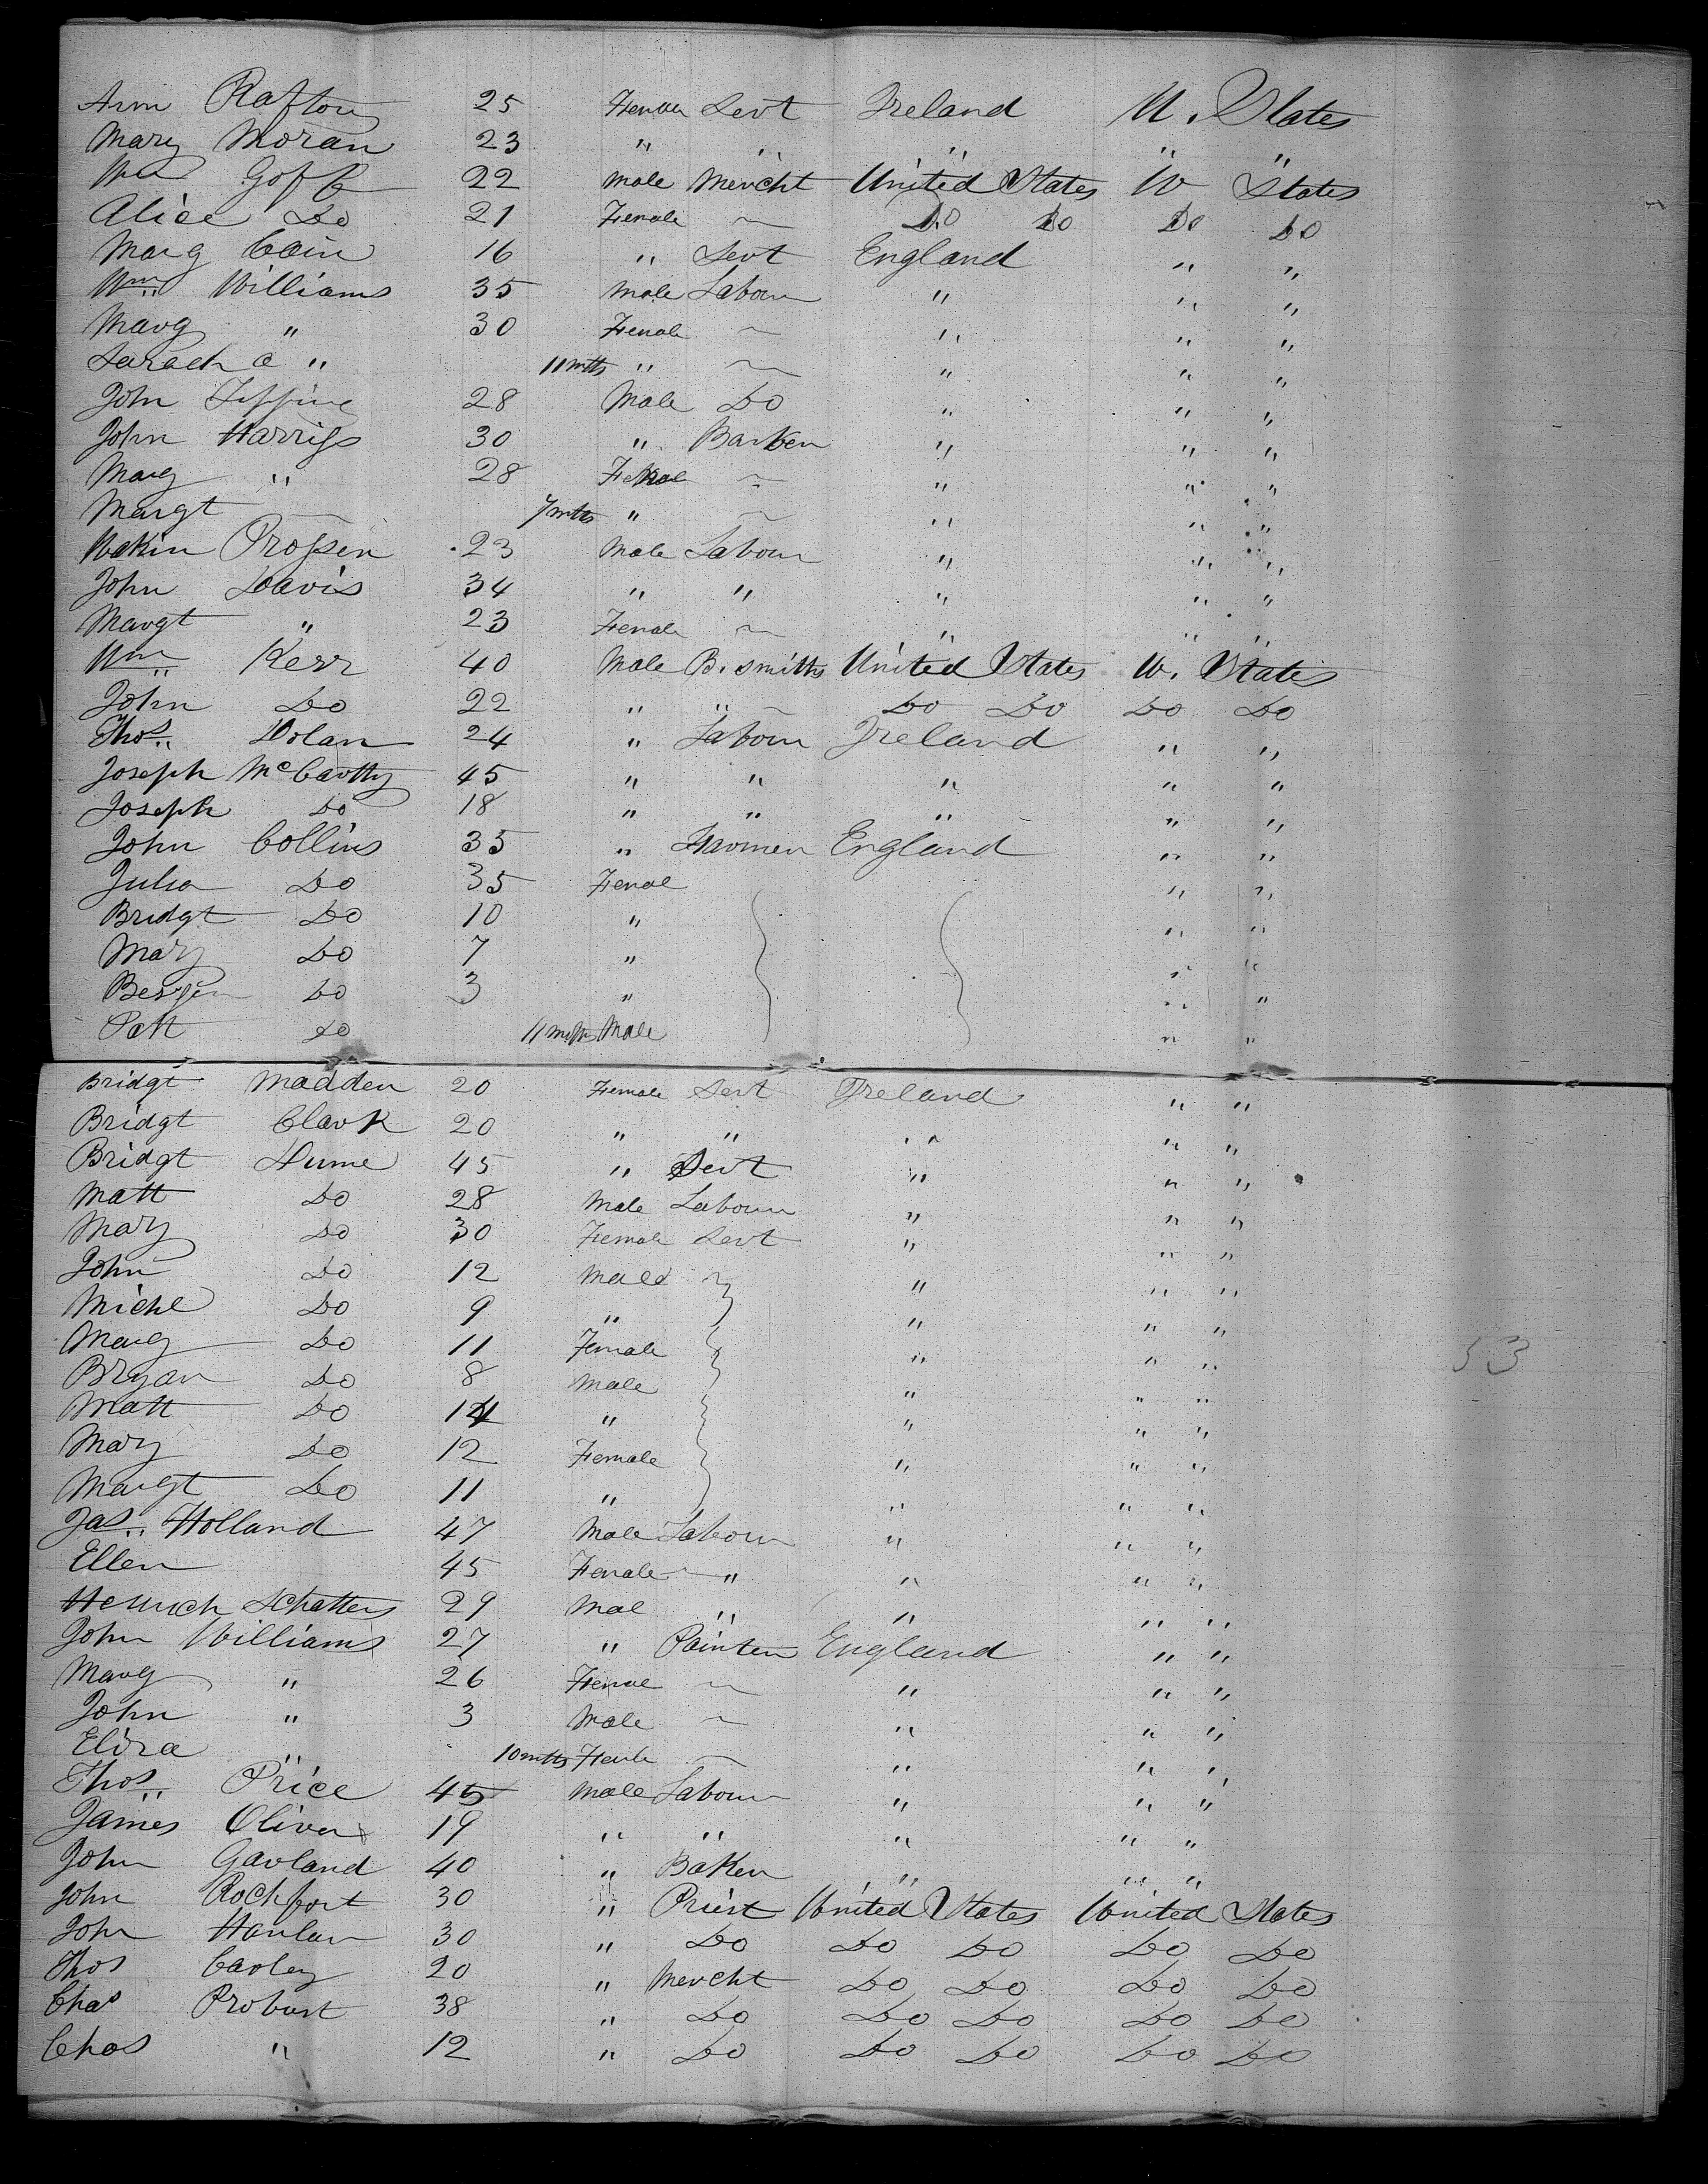 Ann Rafton 25 Female Servt Ireland U. States
Mary Moran 23 " " " " "
Wm Goff 22 Male Mercht United States U States
Alice Do 21 Female ~ Do Do Do Do
Marg Cain 16 " Servt England " "
Wm Williams 35 Male Labour " " "
Marg " 30 Female ~ " " "
Sarach a " 11 mths " ~ " " "
John Tipping 28 Male Do " " "
John Harriss 30 " Barber " " "
Marg " 28 Female ~ " " "
Margt — 7 mths " ~ " " "
Prosser 23 Male Labour " " "
John Davis 34 " " " " "
Margt " 23 Female ~ " " "
Wm Kerr 40 Male B. smiths United States U. States
John Do 22 " " ~ Do Do Do Do
Thos Dolan 24 " Labour Ireland " "
Joseph McCartty 45 " " " " "
Joseph Do 18 " " " " "
John Collins 35 " Farmer England " "
Julia Do 35 Femal " "
Bridgt Do 10 " " "
Mary Do 7 " " "
Do 3 " " "
Patt Do 11 mths Male " "
Bridgt Madden 20 Female Servt Ireland " "
Bridgt Clark 20 " " " " "
Bridgt Hume 45 " Servt " " "
Matt Do 28 Male Labour " " "
Mary Do 30 Female Servt " " "
John Do 12 Male " " "
Michl Do 9 " " " "
Marg Do 11 Female " " "
Bryan Do 8 Male " " "
Matt Do " " " "
Mary Do 12 Female " " "
Margt Do 11 " " " "
Jas Holland 47 Male Labour " " "
Ellen 45 Female ~ " " " "
Schatters 29 Mal " " " "
John Williams 27 " Painter England " "
Marg " 26 Female ~ " " "
John " 3 Male ~ " " "
Eliza " 10 mths Female ~ " " "
53
Thos Price 45 Male Labour " " "
James Oliver 19 " " " " "
John Garland 40 " Baker " " "
John Rochfort 30 " Priest United States United States
John Hanlan 30 " Do Do Do Do Do
Thos Carley 20 " Mercht Do Do Do Do
Chas Probart 38 " Do Do Do Do Do
Chas " 12 " Do Do Do Do Do